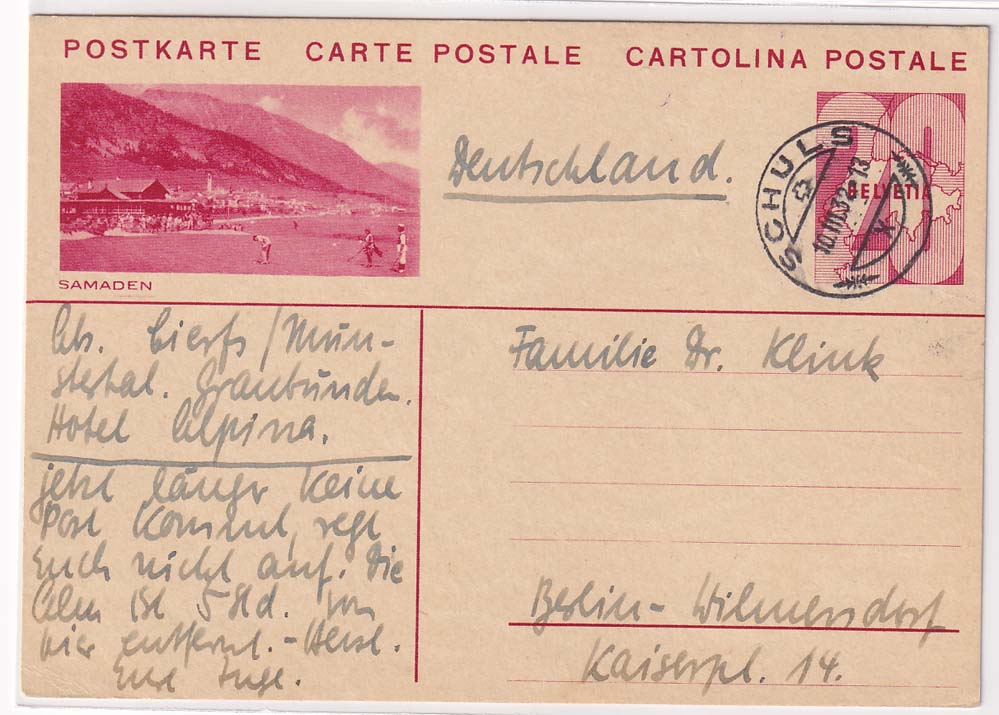 POSTKARTE CARTE POSTALE CARTOLINA POSTALE
SAMADEN
Deutschland.
SCHULS
10.III.32-13
X
HELVETIA
20
Abs. Cierfs/Mün-
stertal. Graubünden.
Hotel Alpina.
jetzt länger keine
Post kommt, regt
Euch nicht auf. Die
Alm ist 5 Std. von
hier entfernt.-Herzl.
Eure Inge.
Familie Dr. Klink
Berlin-Wilmersdorf
Kaiserpl. 14.